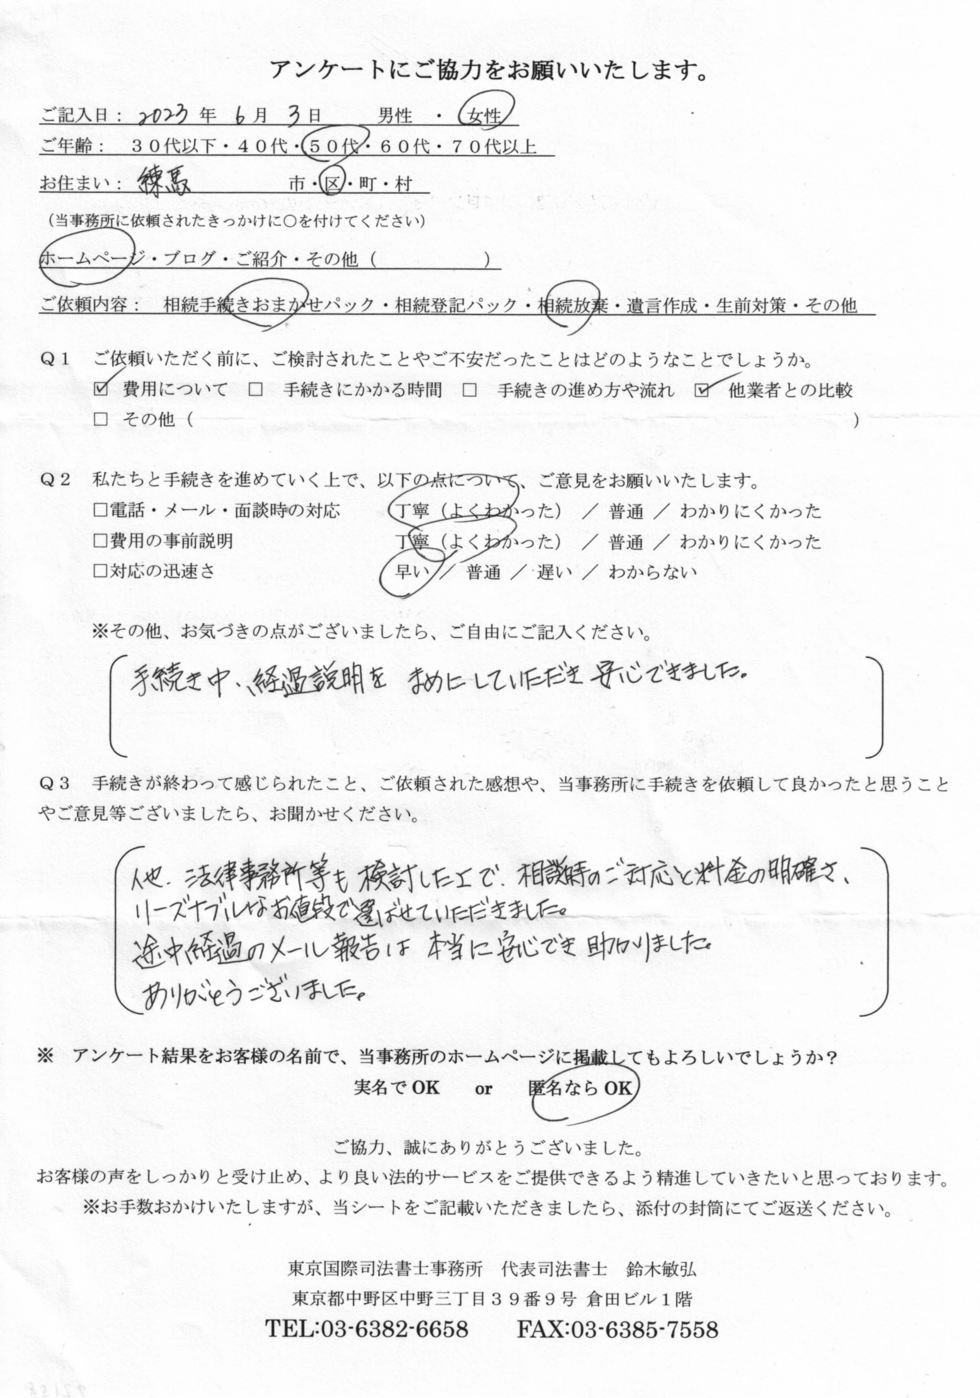 アンケートにご協力をお願いいたします。
ご記入日： 2023 年 6 月 3 日 男性 ・ 女性
ご年齢： ３０代以下・４０代・５０代・６０代・７０代以上
お住まい： 練馬 市・区・町・村
（当事務所に依頼されたきっかけに○を付けてください）
ホームページ・ブログ・ご紹介・その他（ ）
ご依頼内容： 相続手続きおまかせパック・相続登記パック・相続放棄・遺言作成・生前対策・その他
Ｑ１ ご依頼いただく前に、ご検討されたことやご不安だったことはどのようなことでしょうか。
☑ 費用について □ 手続きにかかる時間 □ 手続きの進め方や流れ ☑ 他業者との比較
□ その他（ ）
Ｑ２ 私たちと手続きを進めていく上で、以下の点について、ご意見をお願いいたします。
□電話・メール・面談時の対応 丁寧（よくわかった） ／ 普通 ／ わかりにくかった
□費用の事前説明 丁寧（よくわかった） ／ 普通 ／ わかりにくかった
□対応の迅速さ 早い ／ 普通 ／ 遅い ／ わからない
※その他、お気づきの点がございましたら、ご自由にご記入ください。
手続き中、経過説明を まめにしていただき 安心できました。
Ｑ３ 手続きが終わって感じられたこと、ご依頼された感想や、当事務所に手続きを依頼して良かったと思うこと
やご意見等ございましたら、お聞かせください。
他、法律事務所等も検討した上で、相談時のご対応と料金の明確さ、
リーズナブルなお値段で選ばせていただきました。
途中経過のメール報告は 本当に安心でき 助かりました。
ありがとうございました。
※ アンケート結果をお客様の名前で、当事務所のホームページに掲載してもよろしいでしょうか？
実名で OK or 匿名なら OK
ご協力、誠にありがとうございました。
お客様の声をしっかりと受け止め、より良い法的サービスをご提供できるよう精進していきたいと思っております。
※お手数おかけいたしますが、当シートをご記載いただきましたら、添付の封筒にてご返送ください。
東京国際司法書士事務所 代表司法書士 鈴木敏弘
東京都中野区中野三丁目３９番９号 倉田ビル１階
TEL:03-6382-6658 FAX:03-6385-7558